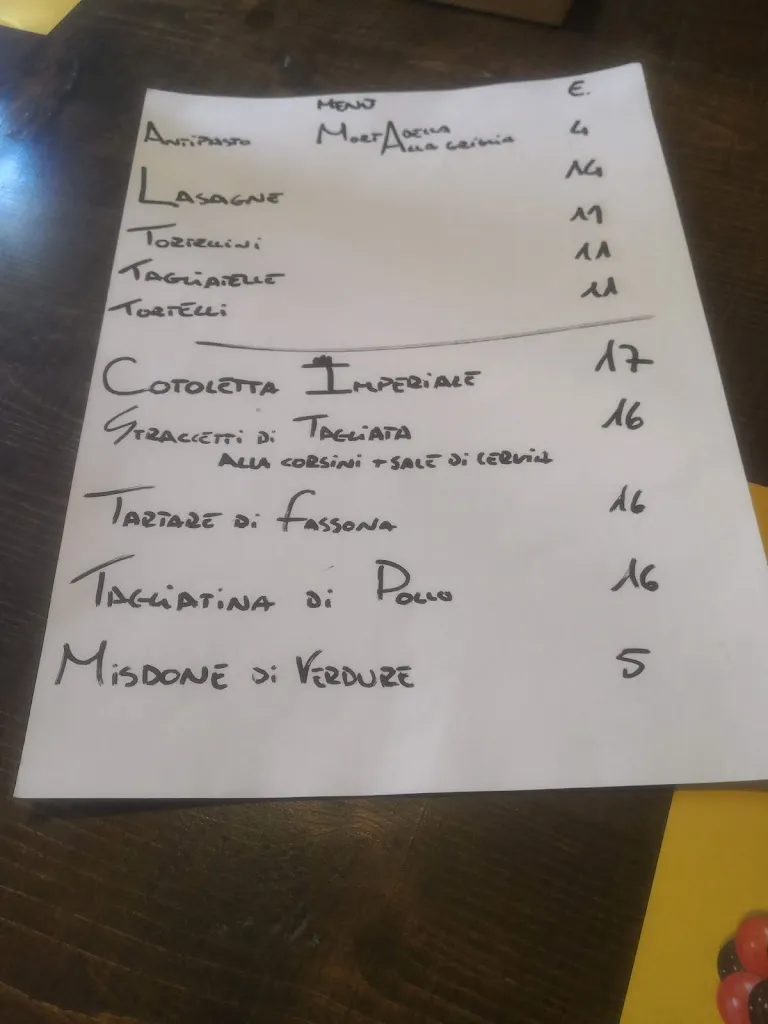 MENÙ E.
ANTIPASTO MORTADELLA 4
ALLA GRIGLIA
LASAGNE 14
TORTELLINI 11
TAGLIATELLE 11
TORTELLI 11
COTOLETTA IMPERIALE 17
STRACCETTI DI TAGLIATA 16
ALLA CORSINI + SALE DI CERVIA
TARTARE DI FASSONA 16
TAGLIATINA DI POLLO 16
MISDONE DI VERDURE 5